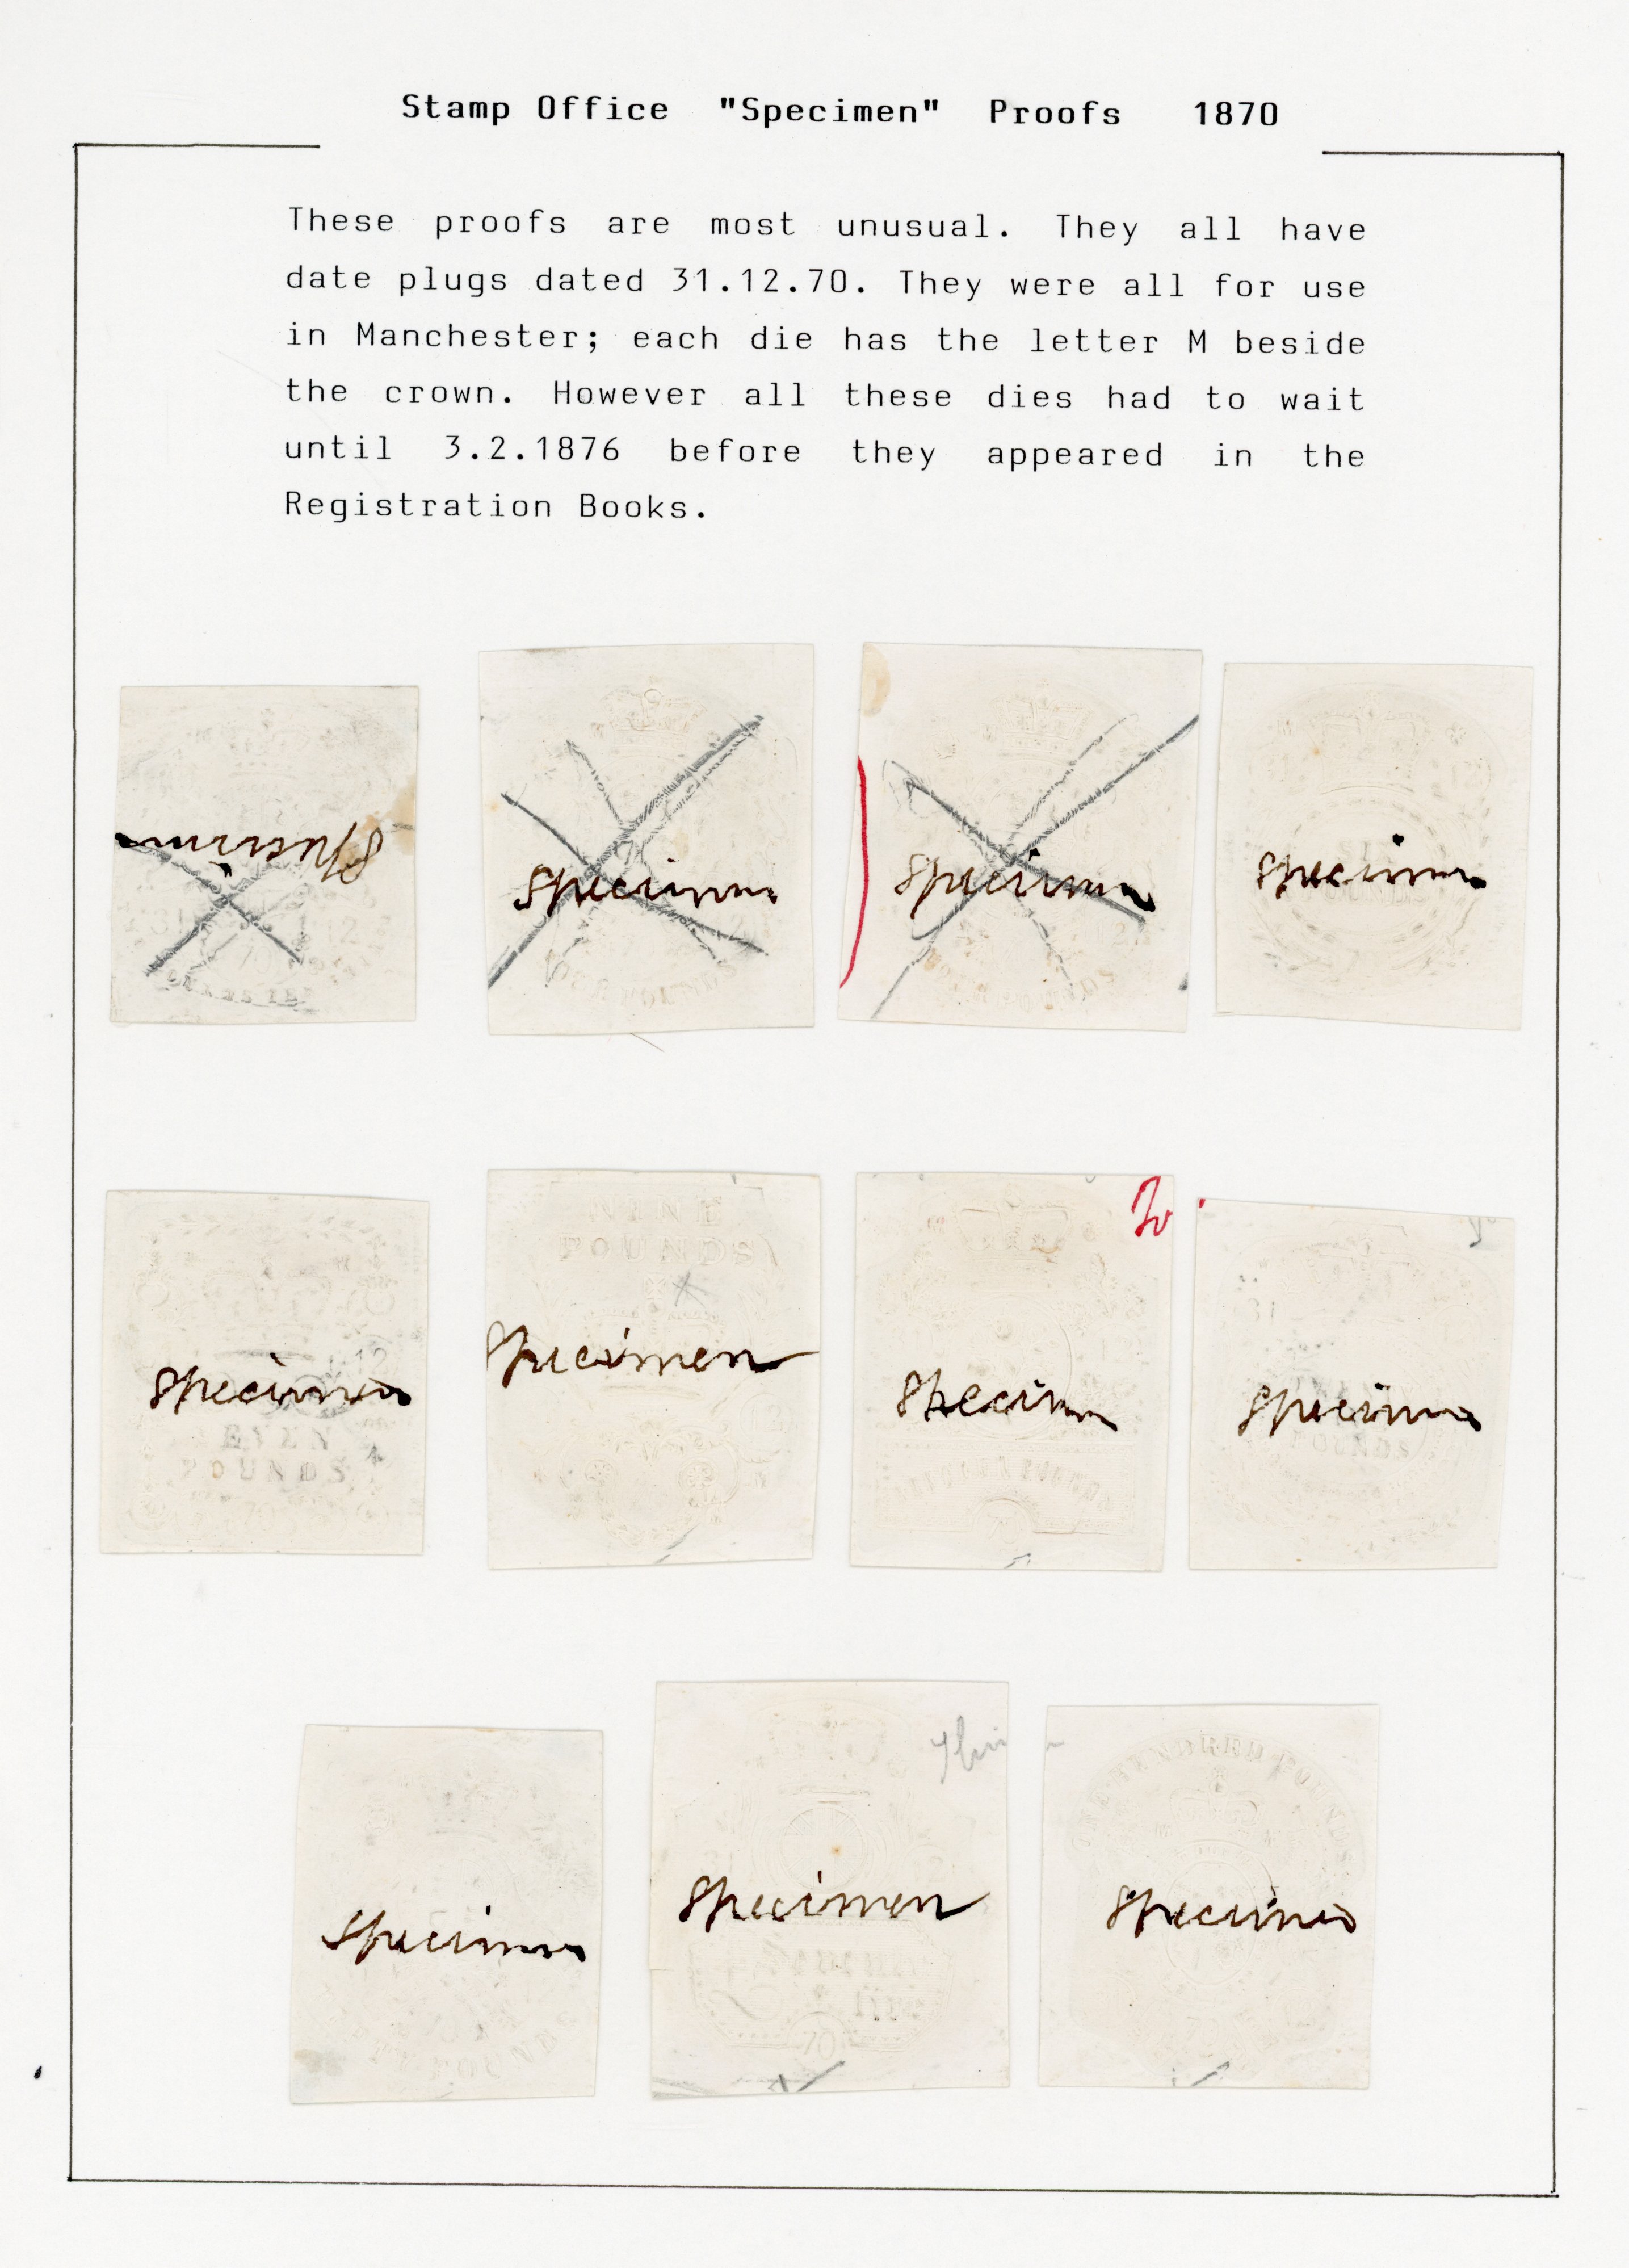 Stamp Office "Specimen" Proofs 1870
These proofs are most unusual. They all have
date plugs dated 31.12.70. They were all for use
in Manchester; each die has the letter M beside
the crown. However all these dies had to wait
until 3.2.1876 before they appeared in the
Registration Books.
Specimen
Specimen
Specimen
Specimen
12
Specimen
POUNDS
NINE
POUNDS
Specimen
Specimen
31
Specimen
POUNDS
Specimen
Specimen
70
ONE HUNDRED POUNDS
Specimen